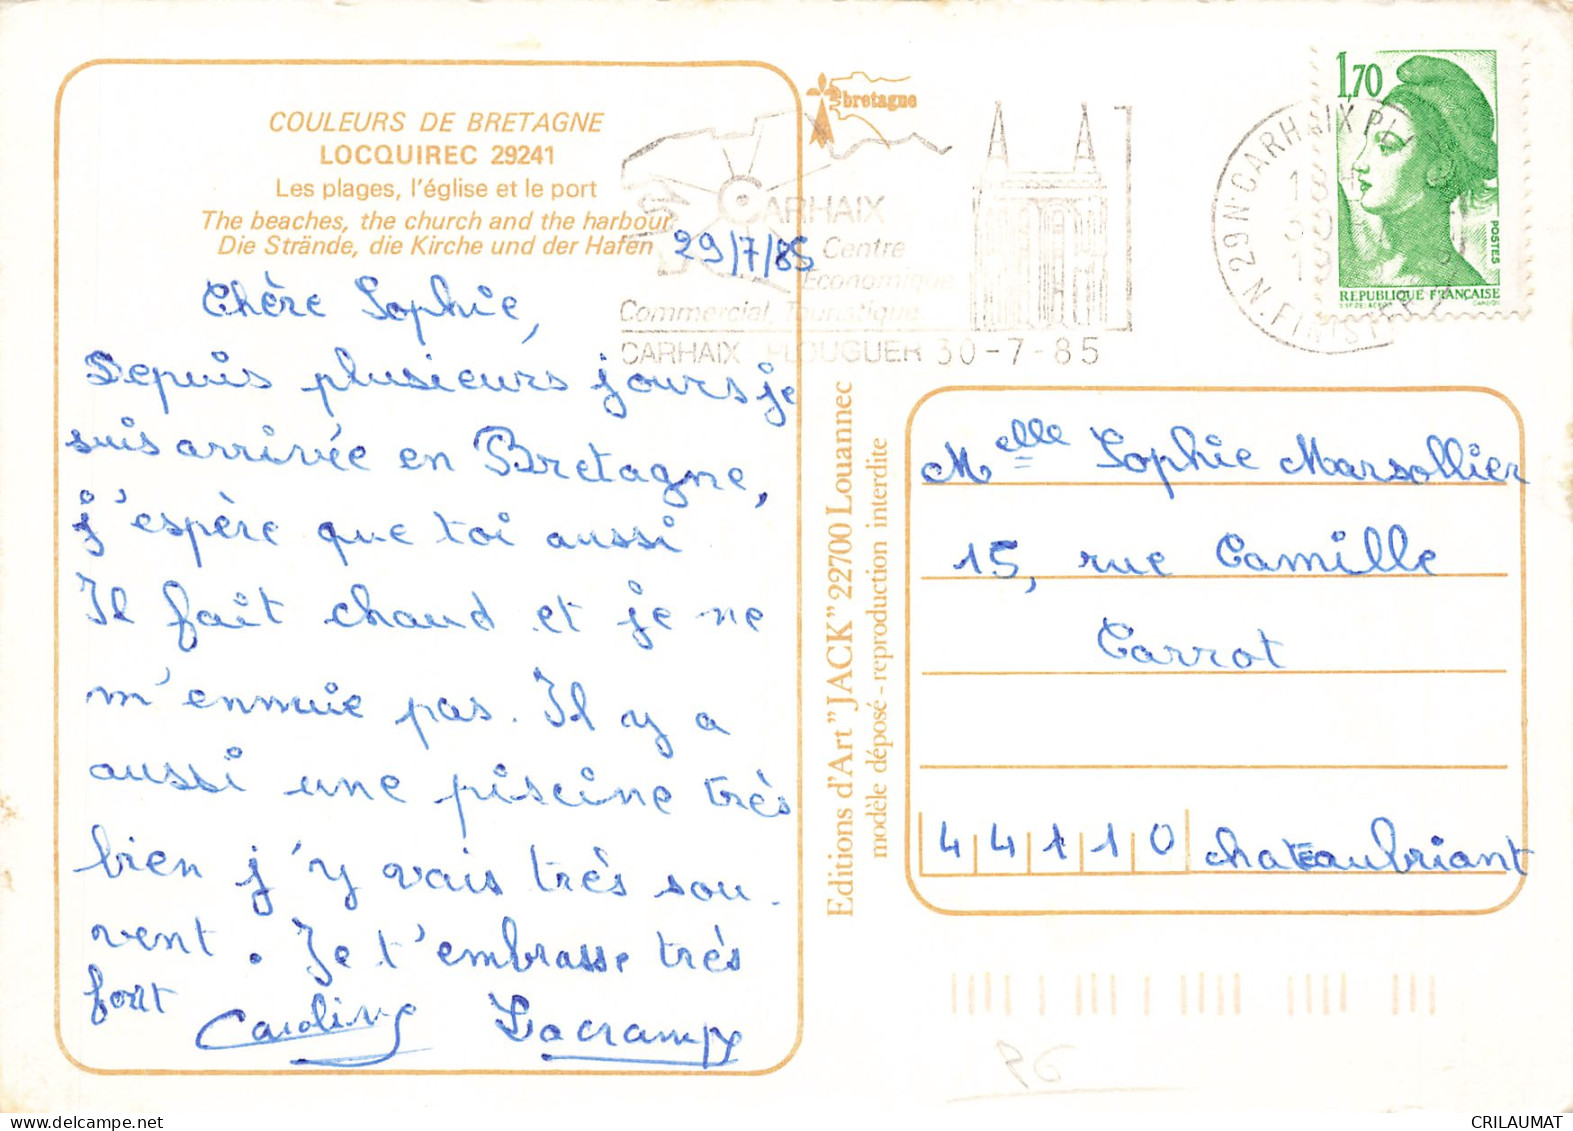 COULEURS DE BRETAGNE
LOCQUIREC 29241
Les plages, l'église et le port
The beaches, the church and the harbour
Die Strände, die Kirche und der Hafen
29/7/85
Chère Sophie,
Depuis plusieurs jours je
suis arrivée en Bretagne,
j'espère que toi aussi
Il fait chaud et je ne
m'ennuie pas. Il y a
aussi une piscine très
bien j'y vais très sou-
vent. Je t'embrasse très
fort
Caroline Lacramp
bretagne
CARHAIX
Centre
Economique
Commercial, Touristique
CARHAIX PLOUGUER 30-7-85
29 N CARHAIX PL
N. FINISTERE
1,70
POSTES
REPUBLIQUE FRANÇAISE
Editions d'Art "JACK" 22700 Louannec
modèle déposé - reproduction interdite
Melle Sophie Marsollier
15, rue Camille
Carrot
44110 chateaubriant
PG
CRILAUMAT